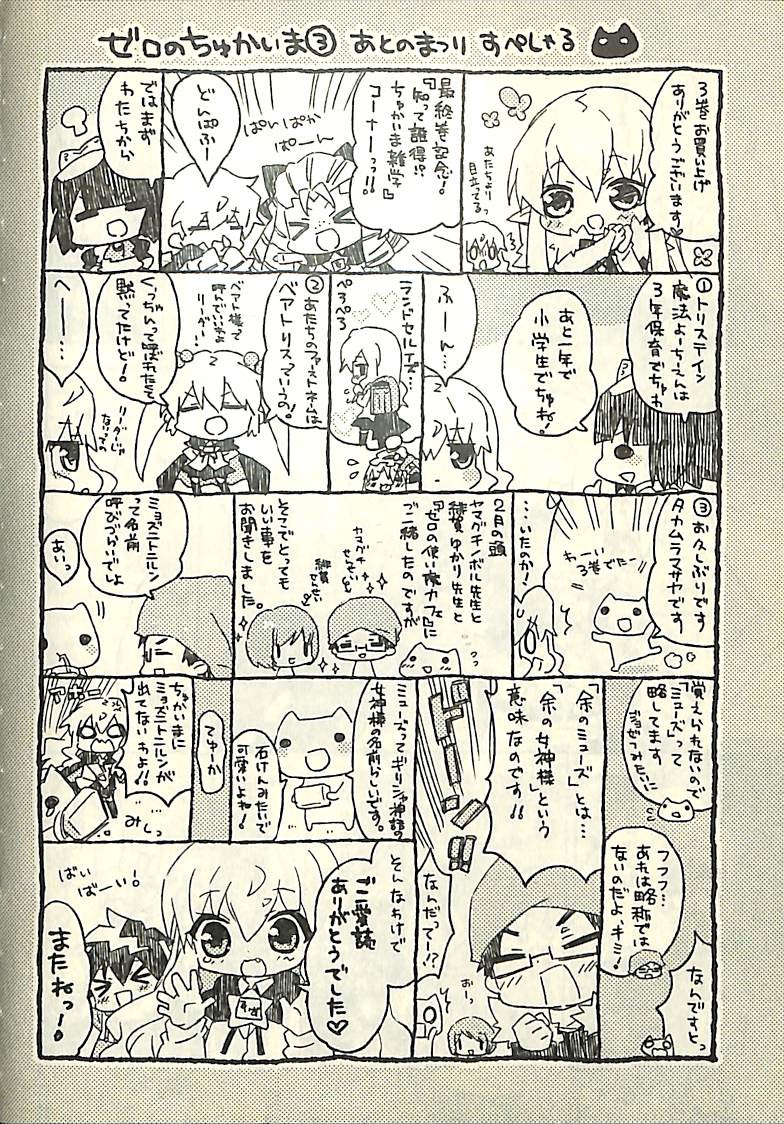 ゼロのちゅかいま③ あとのまつり すぺしゃる
3巻お買い上げ
ありがとうございます♡
あたちより
目立ってるっ
最終巻記念!
『知って誰得!?
ちゅかいま雑学』
コーナーっ!!
ぱいぱか
ぱーん
どんぱふー
ではまず
わたちから
①トリステイン
魔法よーちえんは
3年保育でちゅわ
あと一年で
小学生でちゅね!
ふーん…
ランドセルルイズ…
ぺろ
ぺろ
②あたちのファーストネームは
ベアトリスっていうの!
ベアト様って
呼んでいいわよ
リーダー
くっちゃんって呼ばれたくて
黙ってたけど!
へー…
リーダーじゃ
ないっての
③お久しぶりです
タカムラマサヤです
わーい
3巻でたー
…いたのか!
2月の頭
ヤマグチノボル先生と
綾賀ゆかり先生と
『ゼロの使い魔カフェ』に
ご一緒したのですが
ヤマグチ
せんせい
綾賀
せんせい
そこでとっても
いい事を
お聞きしました。
ミョズニトニルン
って名前
呼びづらいでしょ
あいっ
覚えられないので
「ミューズ」って
略してます
ジョゼフみたいに
フフフ…
あれは略称では
ないのだよ キミ!
なんですとっ
「余のミューズ」とは…
「余の女神様」という
意味なのです!!
なんだってー!?
おーっ
ミューズってギリシャ神話の
女神様の名前らしいです。
石けんみたいで
可愛いよね!
てゅーか
ちゅかいまに
ミョズニトニルンが
出てないわよ!!
アギャー
みしっ
そんなわけで
ご愛読
ありがとうでした♡
ばい
ばーい!
またねっ!